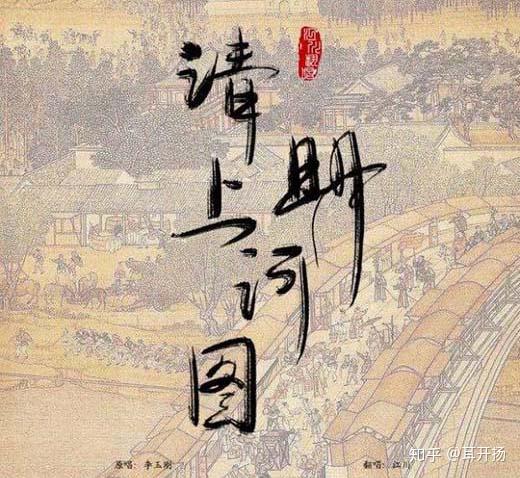 清明上河图
原唱：李玉刚
翻唱：江川
知乎 @耳开扬